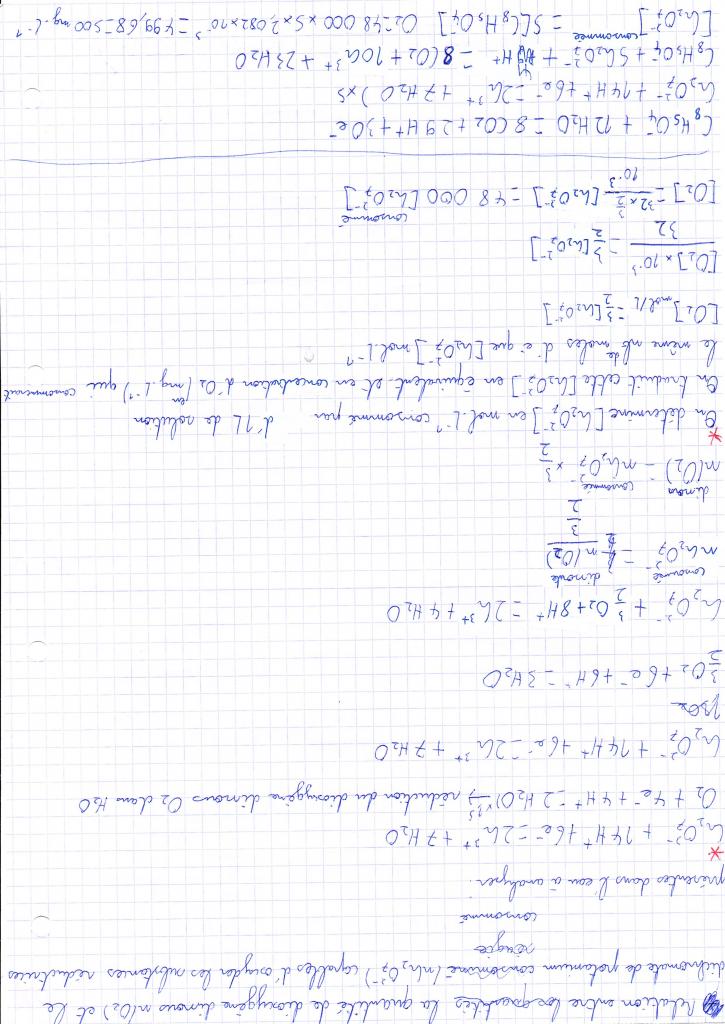 Relation entre les quantités la quantité de dioxygène dinous n(O2) et le
dichromate de potassium consommé (nCr2O7 2-) capables d'oxyder les substances réductrices
réagie
consommé
présentes dans l'eau à analyser.
* Cr2O7 2- + 14H+ + 6e- = 2Cr 3+ + 7H2O
O2 + 4e- + 4H+ = 2H2O) x1,5 → réduction du dioxygène dinous O2 dans H2O
Cr2O7 2- + 14H+ + 6e- = 2Cr 3+ + 7H2O
3/2 O2 + 6e- + 6H+ = 3H2O
Cr2O7 2- + 3/2 O2 + 8H+ = 2Cr 3+ + 4H2O
consommé dinoute
nCr2O7 2- = n(O2) / 3/2
dinous consommé
n(O2) = nCr2O7 2- x 3/2
* On détermine [Cr2O7 2-] en mol.L-1 consommé par d'1L de solution
On traduit cette [Cr2O7 2-] en équivalent et en concentration d'O2 (en mg.L-1) qui consommerait
le même nb de moles d'é que [Cr2O7 2-] mol.L-1
[O2] mol/L = 3/2 [Cr2O7 2-]
[O2] x 10-3 / 32 = 3/2 [Cr2O7 2-]
[O2] = 32 x 3/2 / 10-3 [Cr2O7 2-] = 48 000 [Cr2O7 2-] consommé
C8H5O4- + 12H2O = 8CO2 + 29H+ + 30e-
Cr2O7 2- + 14H+ + 6e- = 2Cr 3+ + 7H2O) x5
C8H5O4- + 5Cr2O7 2- + 41H+ = 8CO2 + 10Cr 3+ + 23H2O
[Cr2O7 2-] consommée = 5[C8H5O4-] O2 = 48 000 x 5 x 2,082 x 10-3 = 499,68 = 500 mg.L-1